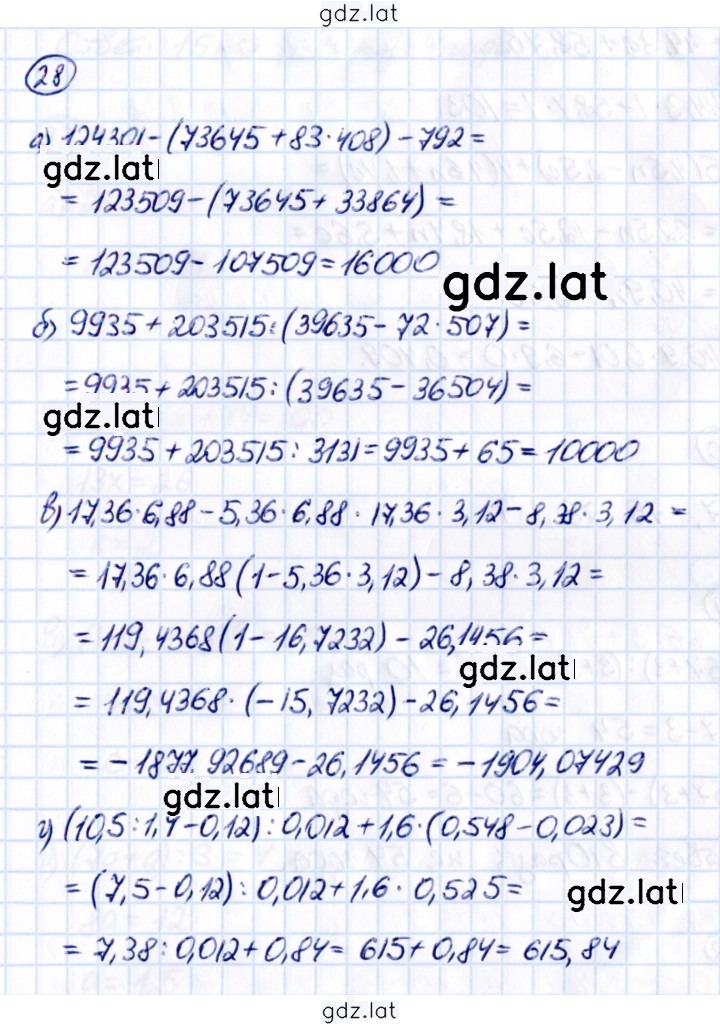 gdz.lat
28
а) 124301-(73645+83·408)-792=
gdz.lat
=123509-(73645+33864)=
=123509-107509=16000
gdz.lat
б) 9935+203515:(39635-72·507)=
=9935+203515:(39635-36504)=
gdz.lat
=9935+203515:3131=9935+65=10000
в) 17,36·6,88-5,36·6,88·17,36·3,12-8,38·3,12=
=17,36·6,88(1-5,36·3,12)-8,38·3,12=
=119,4368(1-16,7232)-26,1456=
gdz.lat
=119,4368·(-15,7232)-26,1456=
=-1877,92689-26,1456=-1904,07429
gdz.lat
г) (10,5:1,4-0,12):0,012+1,6·(0,548-0,023)=
=(7,5-0,12):0,012+1,6·0,525=
gdz.lat
=7,38:0,012+0,84=615+0,84=615,84
gdz.lat